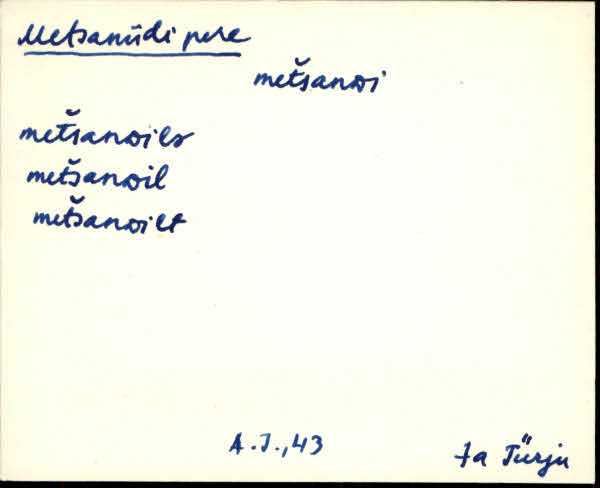 Metsaniidi pere
metšanəi
metšanəilə
metšanəil
metšanəilt
A.J., 43
Ja Türju